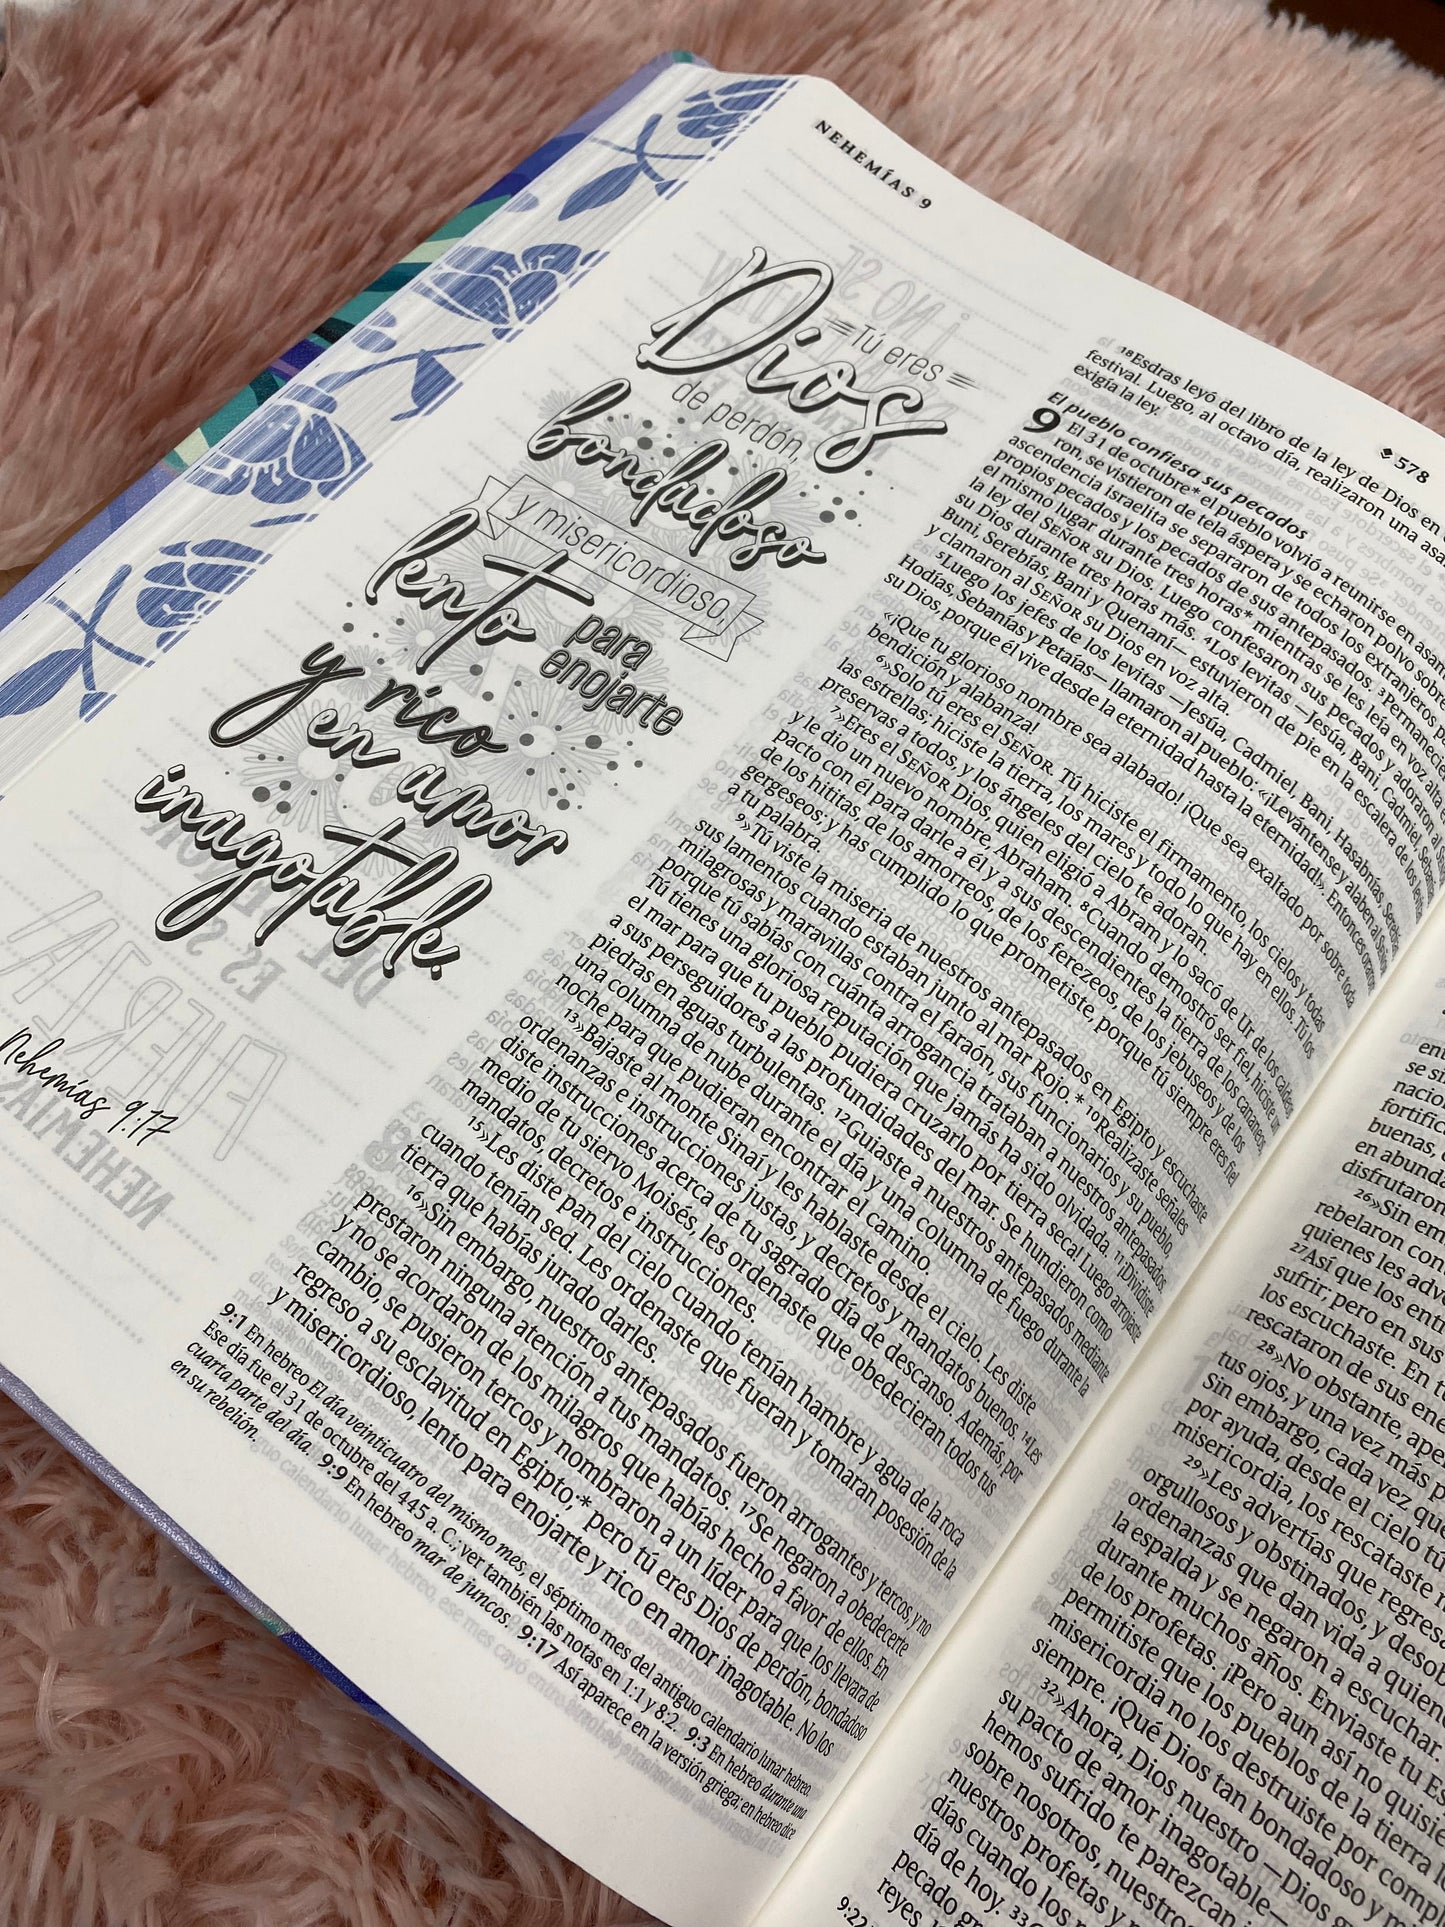 NEHEMÍAS 9
578
Tú eres
Dios
de perdón,
bondadoso
y misericordioso,
lento para
enojarte
y rico
en amor
inagotable.
Nehemías 9:17
18Esdras leyó del libro de la ley de Dios en
festival. Luego, al octavo día, realizaron una
exigía la ley.
El pueblo confiesa sus pecados
9 El 31 de octubre* el pueblo volvió a reunirse en
ron, se vistieron de tela áspera y se echaron polvo sobre
ascendencia israelita se separaron de todos los extranjeros
propios pecados y los pecados de sus antepasados. 3Permanecie
el mismo lugar durante tres horas* mientras se les leía en voz alta
la ley del SEÑOR su Dios. Luego confesaron sus pecados y adoraron al
su Dios durante tres horas más. 4Los levitas —Jesúa, Bani, Cadmiel,
Buni, Serebías, Bani y Quenaní— estuvieron de pie en la escalera de los levitas
y clamaron al SEÑOR su Dios en voz alta.
5Luego los jefes de los levitas —Jesúa, Cadmiel, Bani, Hasabnías, Serebías,
Hodías, Sebanías y Petaías— llamaron al pueblo: «¡Levántense y alaben al Señor
su Dios, porque él vive desde la eternidad hasta la eternidad!». Entonces oraron:
«¡Que tu glorioso nombre sea alabado! ¡Que sea exaltado por sobre toda
bendición y alabanza!
6»Solo tú eres el SEÑOR. Tú hiciste el firmamento, los cielos y todas
las estrellas; hiciste la tierra, los mares y todo lo que hay en ellos. Tú los
preservas a todos, y los ángeles del cielo te adoran.
7»Eres el SEÑOR Dios, quien eligió a Abram y lo sacó de Ur de los caldeos
y le dio un nuevo nombre, Abraham. 8Cuando demostró ser fiel, hiciste un
pacto con él para darle a él y a sus descendientes la tierra de los cananeos,
de los hititas, de los amorreos, de los ferezeos, de los jebuseos y de los
gergeseos; y has cumplido lo que prometiste, porque tú siempre eres fiel
a tu palabra.
9»Tú viste la miseria de nuestros antepasados en Egipto y escuchaste
sus lamentos cuando estaban junto al mar Rojo.* 10Realizaste señales
milagrosas y maravillas contra el faraón, sus funcionarios y su pueblo,
porque tú sabías con cuánta arrogancia trataban a nuestros antepasados.
Tú tienes una gloriosa reputación que jamás ha sido olvidada. 11¡Dividiste
el mar para que tu pueblo pudiera cruzarlo por tierra seca! Luego arrojaste
a sus perseguidores a las profundidades del mar. Se hundieron como
piedras en aguas turbulentas. 12Guiaste a nuestros antepasados mediante
una columna de nube durante el día y una columna de fuego durante la
noche para que pudieran encontrar el camino.
13»Bajaste al monte Sinaí y les hablaste desde el cielo. Les diste
ordenanzas e instrucciones justas, y decretos y mandatos buenos. 14Les
diste instrucciones acerca de tu sagrado día de descanso. Además, por
medio de tu siervo Moisés, les ordenaste que obedecieran todos tus
mandatos, decretos e instrucciones.
15»Les diste pan del cielo cuando tenían hambre y agua de la roca
cuando tenían sed. Les ordenaste que fueran y tomaran posesión de la
tierra que habías jurado darles.
16»Sin embargo, nuestros antepasados fueron arrogantes y tercos, y no
prestaron ninguna atención a tus mandatos. 17Se negaron a obedecerte
y no se acordaron de los milagros que habías hecho a favor de ellos. En
cambio, se pusieron tercos y nombraron a un líder para que los llevara de
regreso a su esclavitud en Egipto;* pero tú eres Dios de perdón, bondadoso
y misericordioso, lento para enojarte y rico en amor inagotable. No los
9:1 En hebreo El día veinticuatro del mismo mes, el séptimo mes del antiguo calendario lunar hebreo.
Ese día fue el 31 de octubre del 445 a. C.; ver también las notas en 1:1 y 8:2. 9:3 En hebreo durante una
cuarta parte del día. 9:9 En hebreo mar de juncos. 9:17 Así aparece en la versión griega; en hebreo dice
en su rebelión.
fortific
buenas,
en abunda
disfrutaron
26»Sin em
rebelaron con
quienes les adv
27Así que los ent
sufrir, pero en sus
los escuchaste. En t
rescataron de sus ene
28»No obstante, ape
tus ojos, y una vez más p
Sin embargo, cada vez que
por ayuda, desde el cielo tú
misericordia, los rescataste
29»Les advertías que regres
orgullosos y obstinados, y desob
ordenanzas que dan vida a quien
la espalda y se negaron a escuchar.
durante muchos años. Enviaste tu Es
de los profetas. ¡Pero aun así no quisie
permitiste que los pueblos de la tierra
misericordia no los destruiste por compl
siempre. ¡Qué Dios tan bondadoso y m
32»Ahora, Dios nuestro —Dios
su pacto de amor inagotable—
hemos sufrido te parezcan
sobre nosotros,
nuestros profetas y
días cuando los
día de hoy. 33
pecado
reyes,
9:22